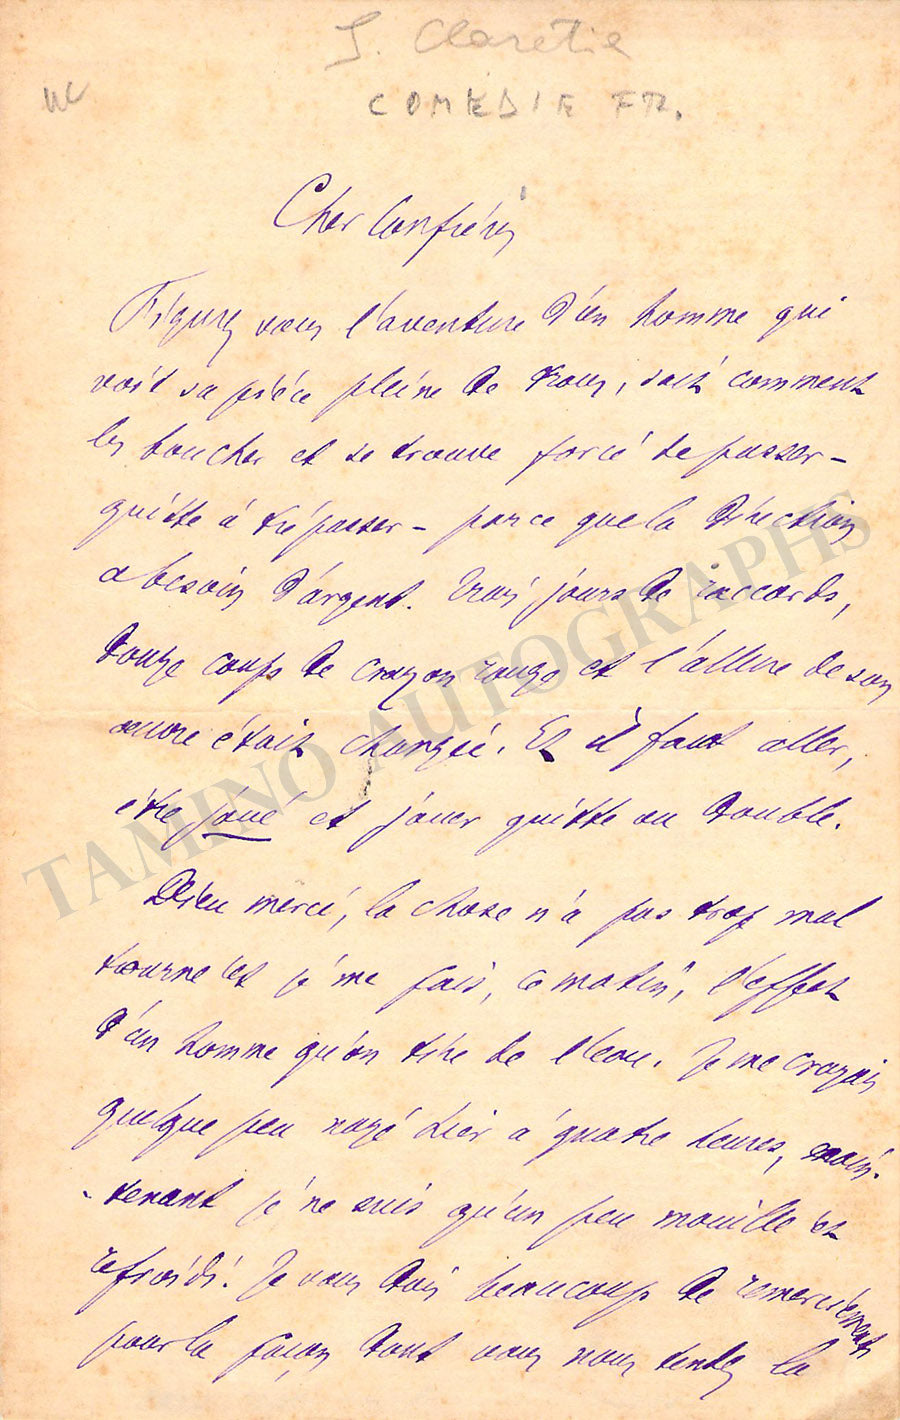 J. Claretie
COMEDIE FR.
Cher Confrère
Figurez vous l'aventure d'un homme qui
voit sa pièce pleine de trous, sait comment
les boucher et se trouve forcé de passer -
quitte à trépasser - parce que la Direction
a besoin d'argent. Trois jours de raccords,
douze coups de crayon rouge et l'allure de son
œuvre était changée. Et il faut aller,
être joué et jouer quitte ou double.
Dieu merci, la chose n'a pas trop mal
tourné et je me fais, ce matin, l'effet
d'un homme qu'on tire de l'eau. Je me croyais
quelque peu noyé hier à quatre heures, main-
-tenant je ne suis qu'un peu mouillé et
refroidi. Je vous dois beaucoup de remerciements
pour la façon dont vous nous tendez la
TAMINO AUTOGRAPHS